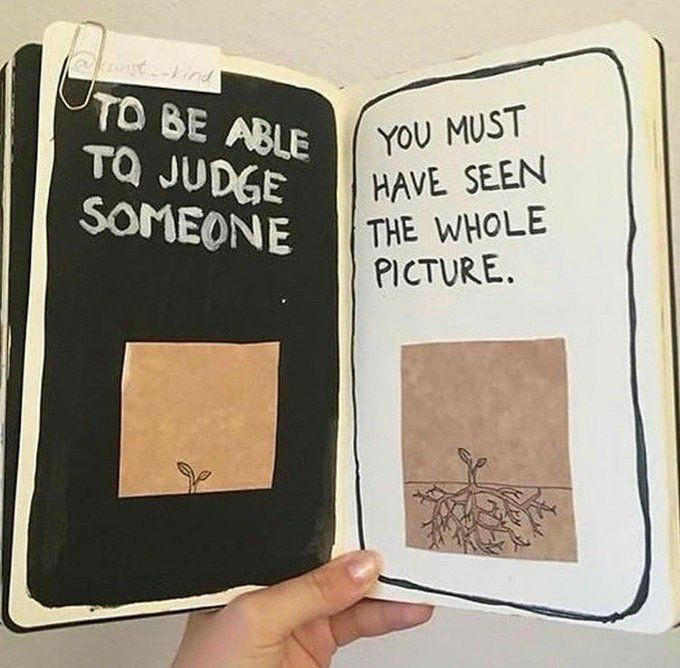 @kunst__kind
TO BE ABLE
TO JUDGE
SOMEONE
YOU MUST
HAVE SEEN
THE WHOLE
PICTURE.